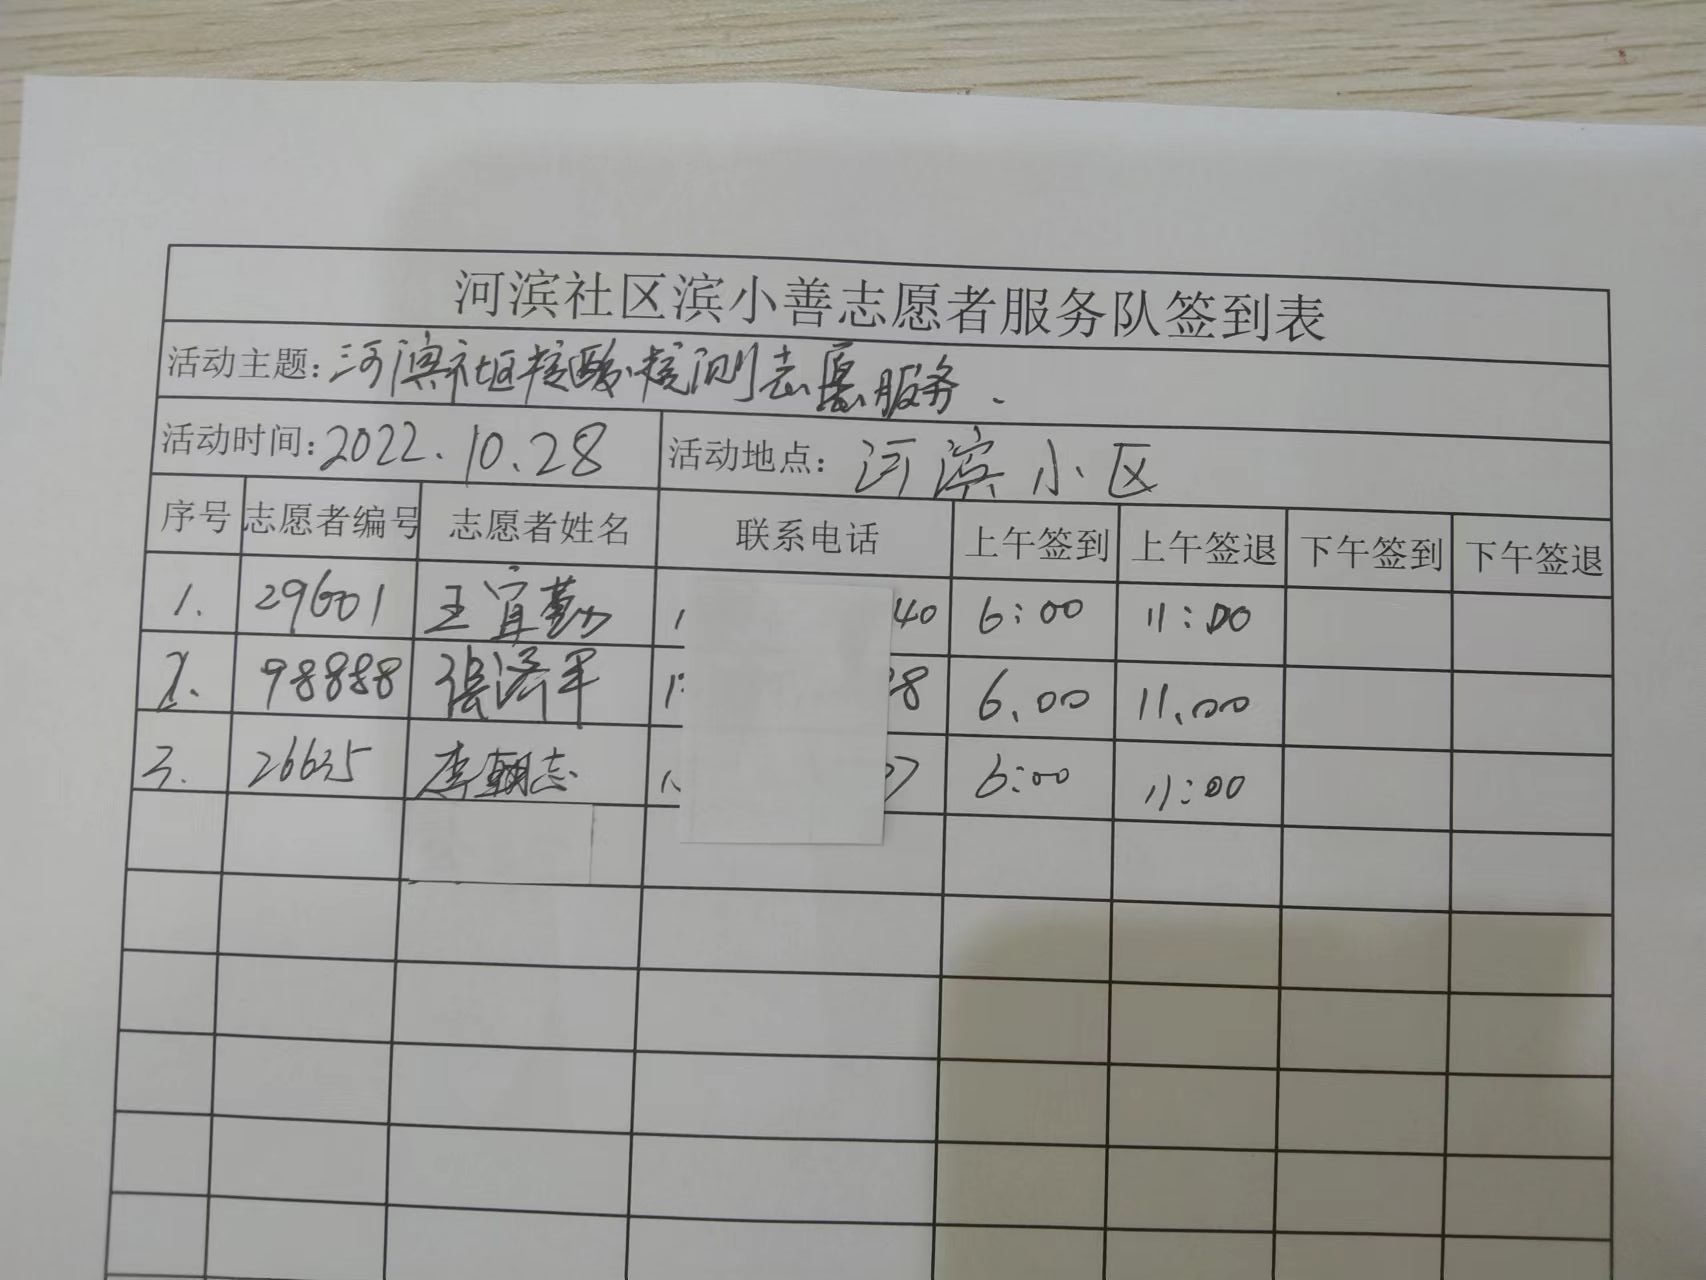 河滨社区滨小善志愿者服务队签到表
活动主题：河滨社区核酸检测志愿服务.
活动时间：2022.10.28 活动地点：河滨小区
序号 志愿者编号 志愿者姓名 联系电话 上午签到 上午签退 下午签到 下午签退
1. 29601 王宜勤 1 40 6:00 11:00
2. 98888 张济军 1 28 6.00 11.00
3. 26635 李朝志 1 37 6:00 11:00